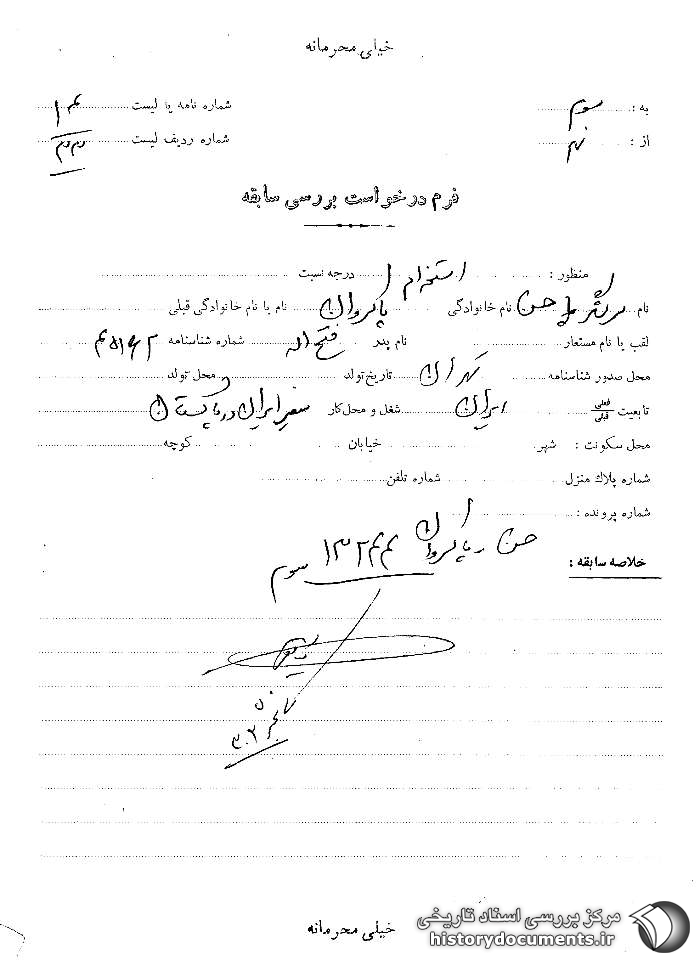 خیلی محرمانه
به : سوم شماره نامه یا لیست
از : نهم شماره ردیف لیست
فرم درخواست بررسی سابقه
منظور : استخدام درجه نسبت
نام سرلشگر حسن نام خانوادگی پاکروان نام یا نام خانوادگی قبلی
لقب یا نام مستعار نام پدر فتح اله شماره شناسنامه
محل صدور شناسنامه تهران تاریخ تولد محل تولد
تابعیت فعلی قبلی ایران شغل و محل کار سفیر ایران در پاکستان
محل سکونت : شهر خیابان کوچه
شماره پلاک منزل شماره تلفن
شماره پرونده :
حسن پاکروان ۱۳۲۴۴ سوم
خلاصه سابقه :
خیلی محرمانه
مرکز بررسی اسناد تاریخی
historydocuments.ir